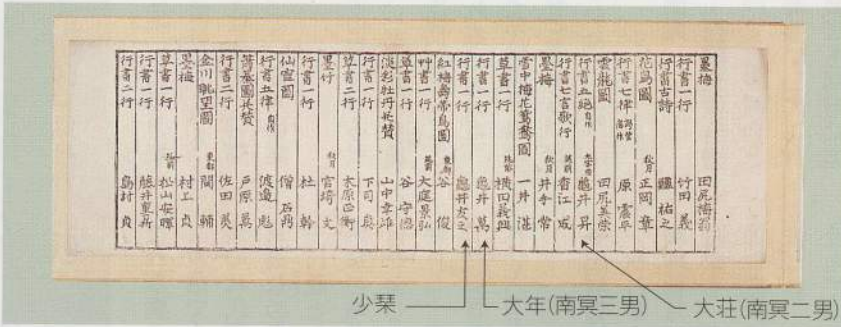 墨梅 田尻梅翁
行書一行 竹田 義
行書古詩 祐之
花鳥圖 秋月 正岡 章
行書七律 原 震平
雲龍圖 田尻美崇
行書五絶 自作 龜井 昇
行書七言歌行 香江 成
墨梅 秋月 井手 常
雪中梅花鴛鴦圖 一井 湛
草書一行 横田義興
行書一行 龜井 萬
行書一行 龜井友之
紅梅壽帶鳥圖 東都 谷 俊
艸書一行 大庭景弘
草書一行 谷 守
淡彩牡丹並賛 山中幸雄
行書一行 下司
草書二行 木原正衡
墨竹 秋月 宮埼 文
行書一行 杜 幹
仙窟圖 僧
行書五律 自作 渡邉 彪
圖並賛 戸原 萬
行書二行 佐田
金川眺望圖 東都 間 輔
墨梅 村上 貞
草書一行 松山安暉
行書一行 藤井
行書二行 島村 貞
少琹
大年(南冥三男)
大荘(南冥二男)